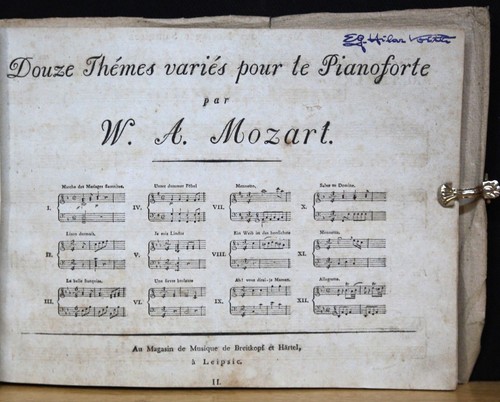 Douze Thémes variés pour le Pianoforte
par
W. A. Mozart.
Marche des Mariages Samnites.
Unser dummer Pöbel
Menuetto.
Salve tu Domine.
I.
IV.
VII.
X.
Lison dormait.
Je suis Lindor
Ein Weib ist das herrlichste
Menuetto.
II.
V.
VIII.
XI.
La belle françoise.
Une fievre brulante
Ah! vous dirai-je Maman.
Allegretto.
III.
VI.
IX.
XII.
Au Magasin de Musique de Breitkopf et Härtel,
à Leipsic.
II.